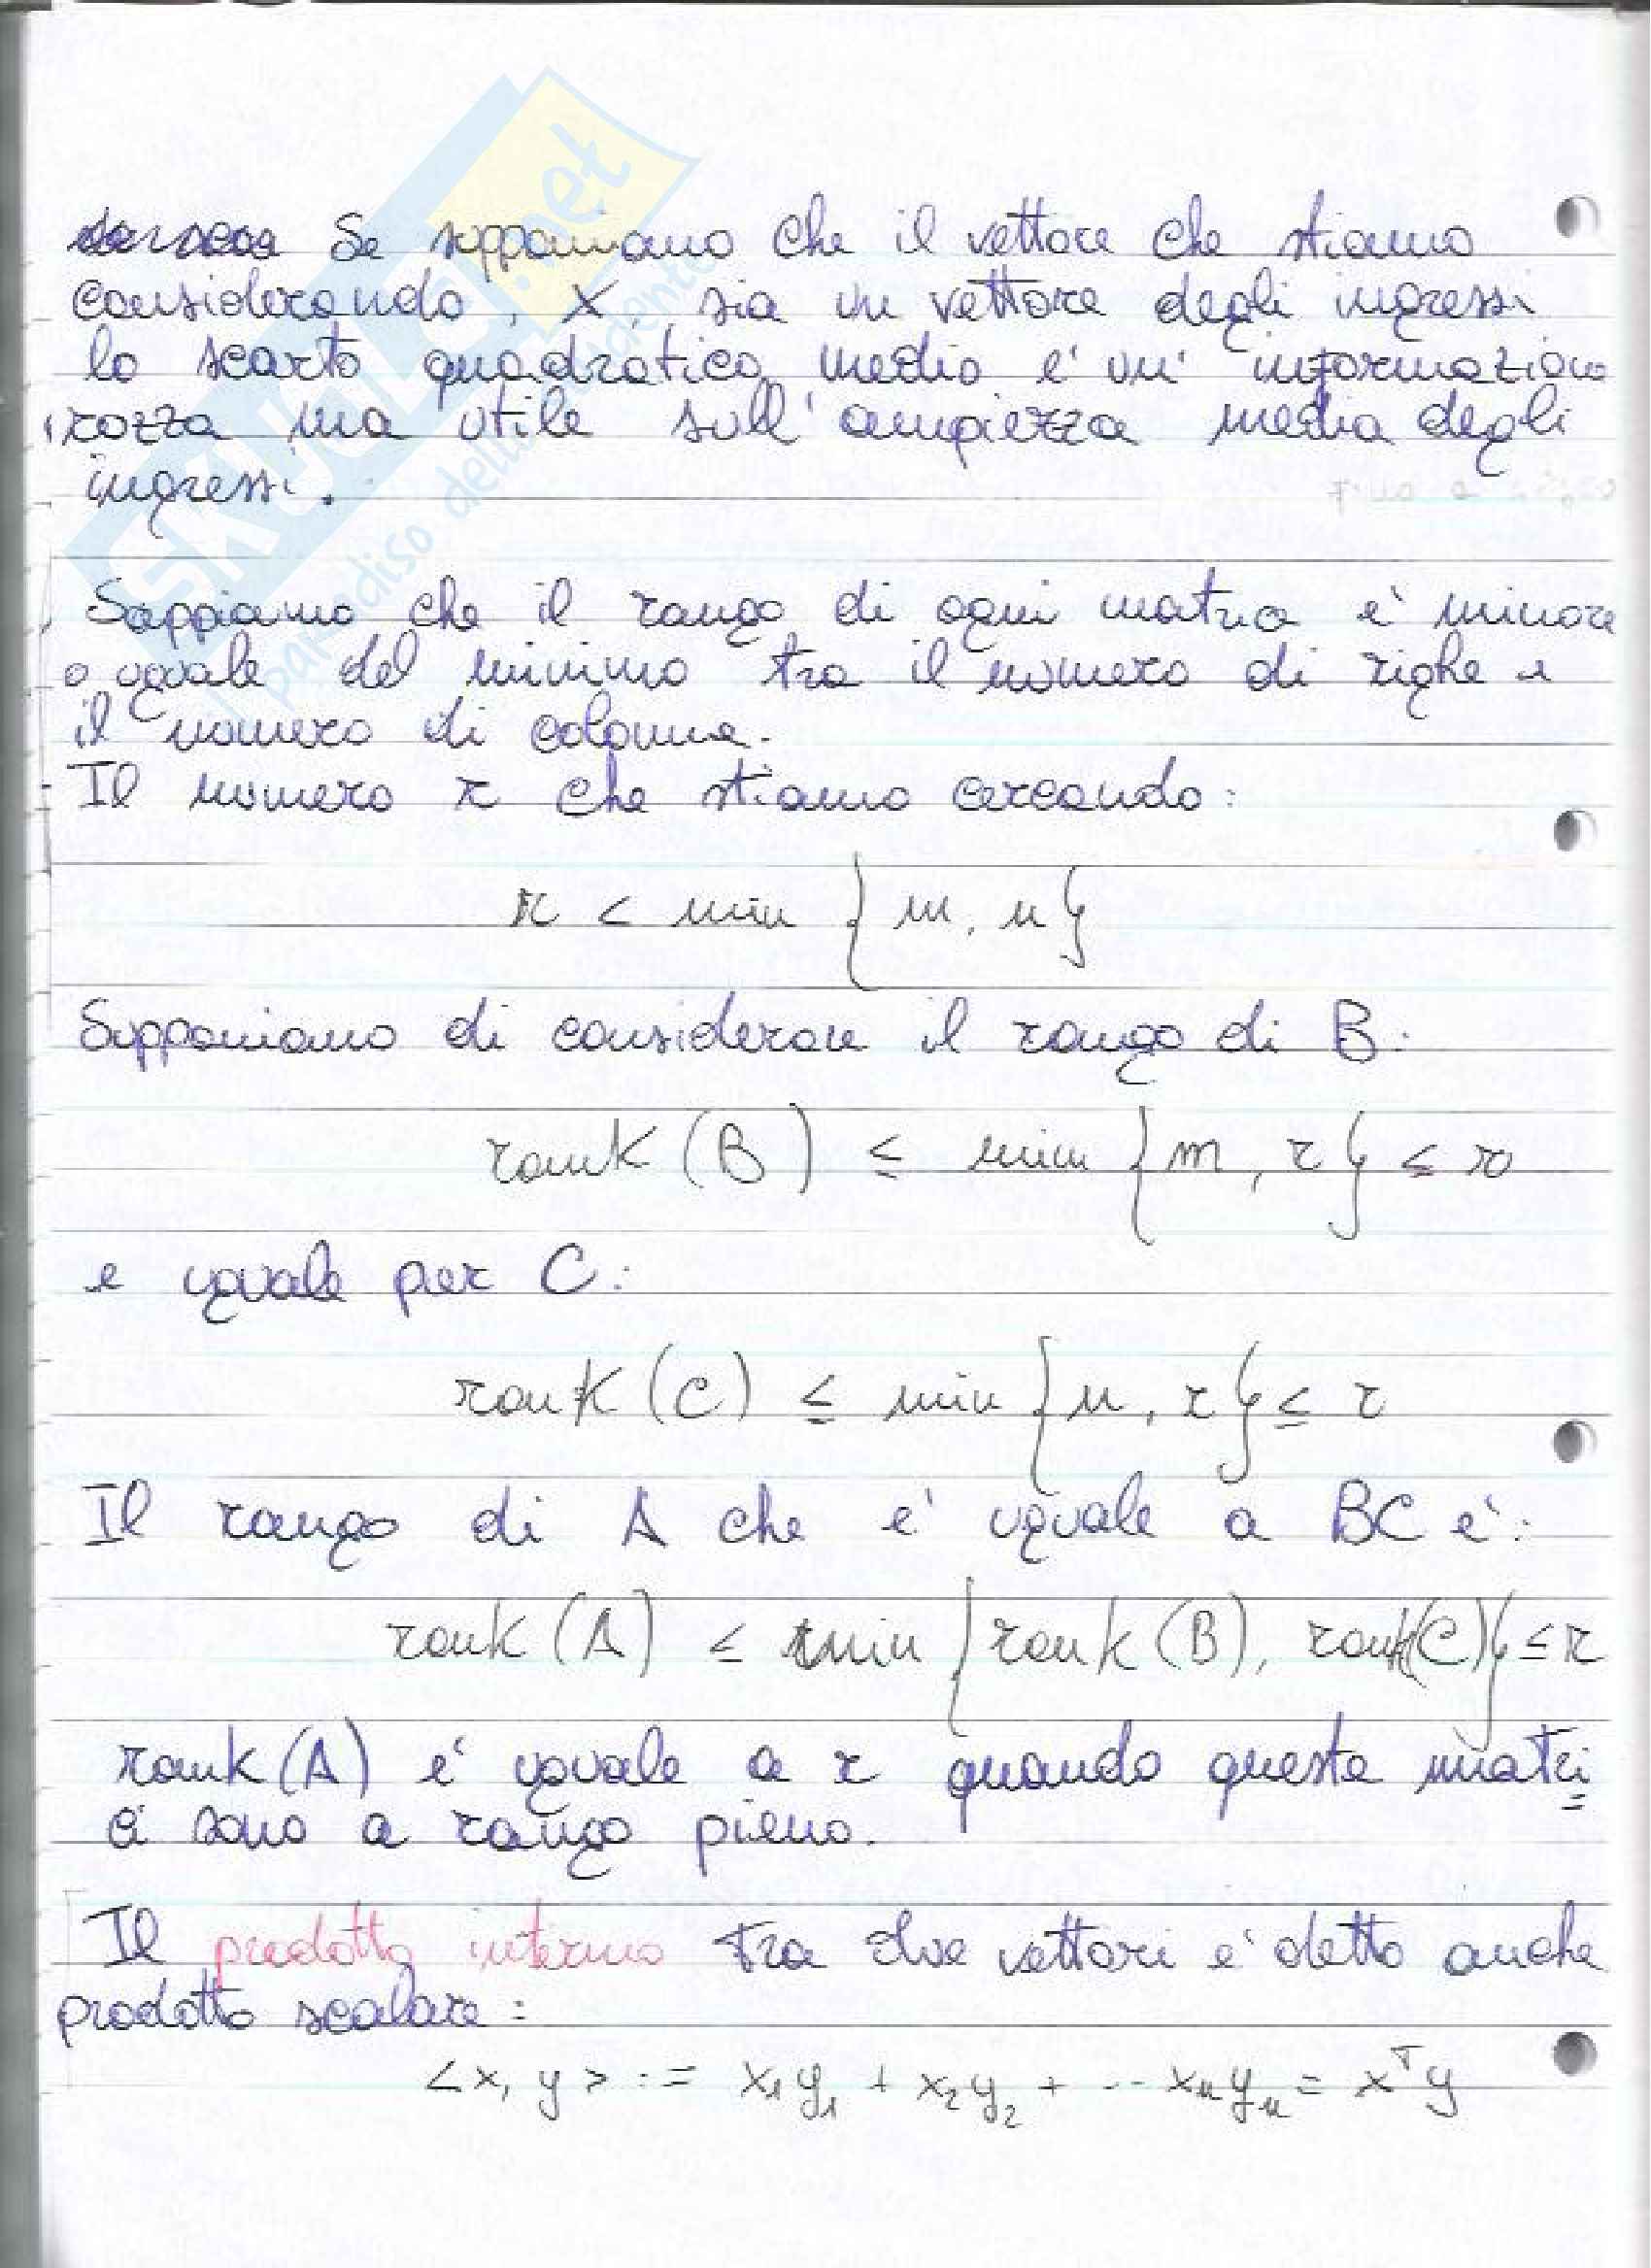 Se supponiamo che il vettore che stiamo
considerando, x, sia un vettore degli ingressi
lo scarto quadratico medio e' un' informazione
rozza ma utile sull' ampiezza media degli
ingressi.
Sappiamo che il rango di ogni matrice e' minore
o uguale del minimo tra il numero di righe e
il numero di colonne.
Il numero r che stiamo cercando:
r < min { m, n }
Supponiamo di considerare il rango di B:
rank (B) ≤ min { m, r } ≤ r
e uguale per C:
rank (C) ≤ min { n, r } ≤ r
Il rango di A che e' uguale a BC e':
rank (A) ≤ min { rank (B), rank (C) } ≤ r
rank (A) e' uguale a r quando queste matri
ci sono a rango pieno.
Il prodotto interno tra due vettori e' detto anche
prodotto scalare:
<x, y> := x₁y₁ + x₂y₂ + ... xₙyₙ = xᵀy
SKUOLA.net
il paradiso dello studente